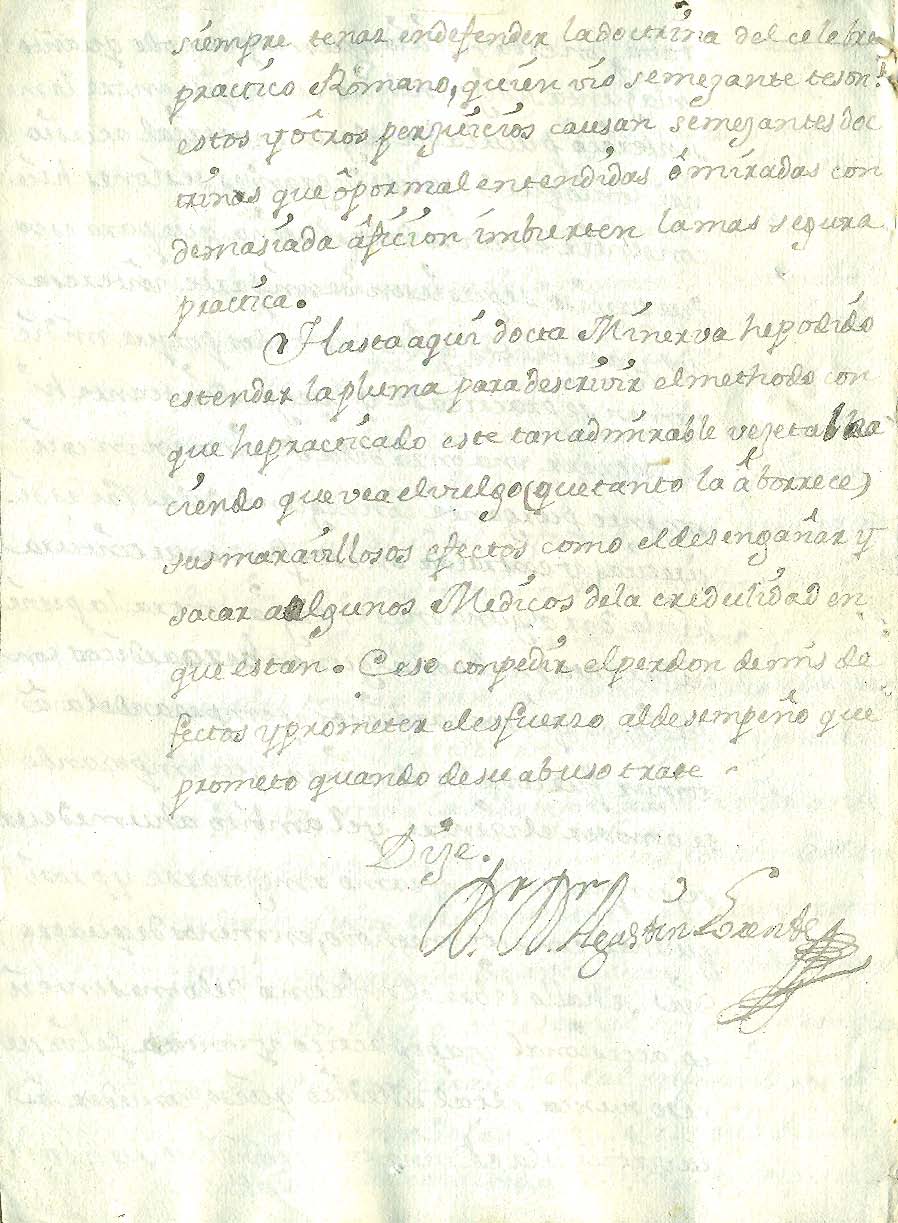 siempre tenaz endefender ladoctrina del celebre
practico Romano, quien vio semejante teson!
estos yôtros perjuicios causan semejantes doc
trinas que ôpormal entendidas ô miradas con
demasiada âficion imbierten lamas segura
practica.
Hastaaqui docta Minerva hepodido
estender lapluma paradescrivir elmethodo con
que hepracticado este tanadmirable vejetal ha
ciendo que vea elvulgo (quetanto la âborrece)
sus maravillosos efectos como el desengañar y
sacar aalgunos Medicos dela credulidad en
que estan. Ceso conpedir elperdon demis de
fectos yprometer elesfuerzo aldesempeño que
prometo quando desu abuso trate
Dije.
Dr. Dn. Agustin Lorente